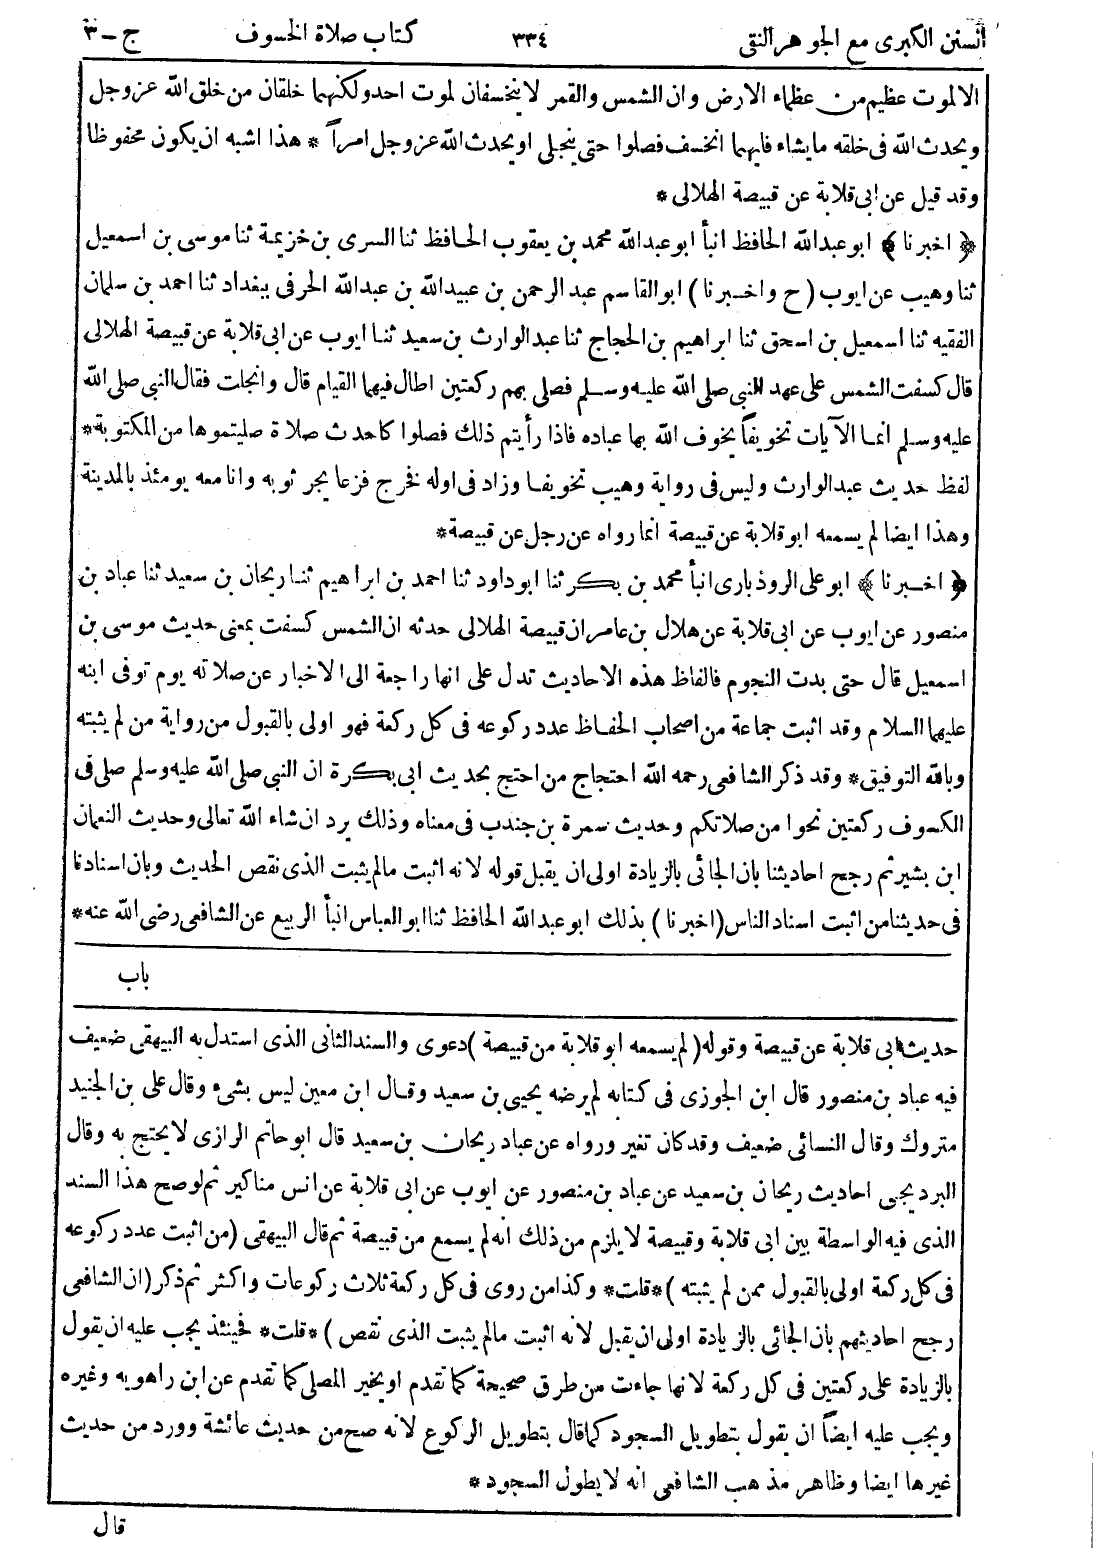 السنن الكبرى مع الجوهر النقى ٣٣٤ كتاب صلاة الخسوف ج-٣
الا لموت عظيم من عظماء الارض وان الشمس والقمر لا ينخسفان لموت احد ولكنهما خلقان من خلق الله عزوجل
ويحدث الله فى خلقه ما يشاء فايهما انخسف فصلوا حتى ينجلى او يحدث الله عزوجل امراً * هذا اشبه ان يكون محفوظا
وقد قيل عن ابى قلابة عن قبيصة الهلالى *
﴿ اخبرنا ﴾ ابو عبدالله الحافظ انبأ ابو عبدالله محمد بن يعقوب الحافظ ثنا السرى بن خزيمة ثنا موسى بن اسمعيل
ثنا وهيب عن ايوب (ح واخبرنا) ابو القاسم عبد الرحمن بن عبيدالله بن عبدالله الحرفى ببغداد ثنا احمد بن سلمان
الفقيه ثنا اسمعيل بن اسحق ثنا ابراهيم بن الحجاج ثنا عبد الوارث بن سعيد ثنا ايوب عن ابى قلابة عن قبيصة الهلالى
قال كسفت الشمس على عهد النبى صلى الله عليه وسلم فصلى بهم ركعتين اطال فيهما القيام قال وانجلت فقال النبى صلى الله
عليه وسلم انما الآيات تخويفاً يخوف الله بها عباده فاذا رأيتم ذلك فصلوا كاحدث صلاة صليتموها من المكتوبة *
لفظ حديث عبد الوارث وليس فى رواية وهيب تخويفا وزاد فى اوله فخرج فزعا يجر ثوبه وانا معه يومئذ بالمدينة
وهذا ايضا لم يسمعه ابو قلابة عن قبيصة انما رواه عن رجل عن قبيصة *
﴿ اخبرنا ﴾ ابو على الروذبارى انبأ محمد بن بكر ثنا ابو داود ثنا احمد بن ابراهيم ثنا ريحان بن سعيد ثنا عباد بن
منصور عن ايوب عن ابى قلابة عن هلال بن عامر ان قبيصة الهلالى حدثه ان الشمس كسفت بمعنى حديث موسى بن
اسمعيل قال حتى بدت النجوم فالفاظ هذه الاحاديث تدل على انها راجعة الى الاخبار عن صلاته يوم توفى ابنه
عليهما السلام وقد اثبت جماعة من اصحاب الحفاظ عدد ركوعه فى كل ركعة فهو اولى بالقبول من رواية من لم يثبته
وبالله التوفيق * وقد ذكر الشافعى رحمه الله احتجاج من احتج بحديث ابى بكرة ان النبى صلى الله عليه وسلم صلى فى
الكسوف ركعتين نحوا من صلاتكم وحديث سمرة بن جندب فى معناه وذلك يرد ان شاء الله تعالى وحديث النعمان
ابن بشير ثم رجح احاديثنا بان الجائى بالزيادة اولى ان يقبل قوله لانه اثبت مالم يثبت الذى نقص الحديث وبان اسنادنا
فى حديثنا من اثبت اسناد الناس (اخبرنا) بذلك ابو عبدالله الحافظ ثنا ابو العباس انبأ الربيع عن الشافعى رضى الله عنه *
باب
حديث ابى قلابة عن قبيصة وقوله (لم يسمعه ابو قلابة من قبيصة) دعوى والسند الثانى الذى استدل به البيهقى ضعيف
فيه عباد بن منصور قال ابن الجوزى فى كتابه لم يرضه يحيى بن سعيد وقال ابن معين ليس بشىء وقال على بن الجنيد
متروك وقال النسائى ضعيف وقد كان تغير ورواه عن عباد ريحان بن سعيد قال ابو حاتم الرازى لا يحتج به وقال
البرديجى احاديث ريحان بن سعيد عن عباد بن منصور عن ايوب عن ابى قلابة عن انس مناكير ثم لو صح هذا السند
الذى فيه الواسطة بين ابى قلابة وقبيصة لا يلزم من ذلك انه لم يسمع من قبيصة ثم قال البيهقى (من اثبت عدد ركوعه
فى كل ركعة اولى بالقبول ممن لم يثبته) * قلت * وكذا من روى فى كل ركعة ثلاث ركوعات واكثر ثم ذكر (ان الشافعى
رجح احاديثهم بان الجائى بالزيادة اولى ان يقبل لانه اثبت مالم يثبت الذى نقص) * قلت * فحينئذ يجب عليه ان يقول
بالزيادة على ركعتين فى كل ركعة لانها جاءت من طرق صحيحة كما تقدم او يخير المصلى كما تقدم عن ابن راهويه وغيره
ويجب عليه ايضاً ان يقول بتطويل السجود كما قال بتطويل الركوع لانه صح من حديث عائشة وورد من حديث
غيرها ايضا وظاهر مذهب الشافعى انه لا يطول السجود *
قال